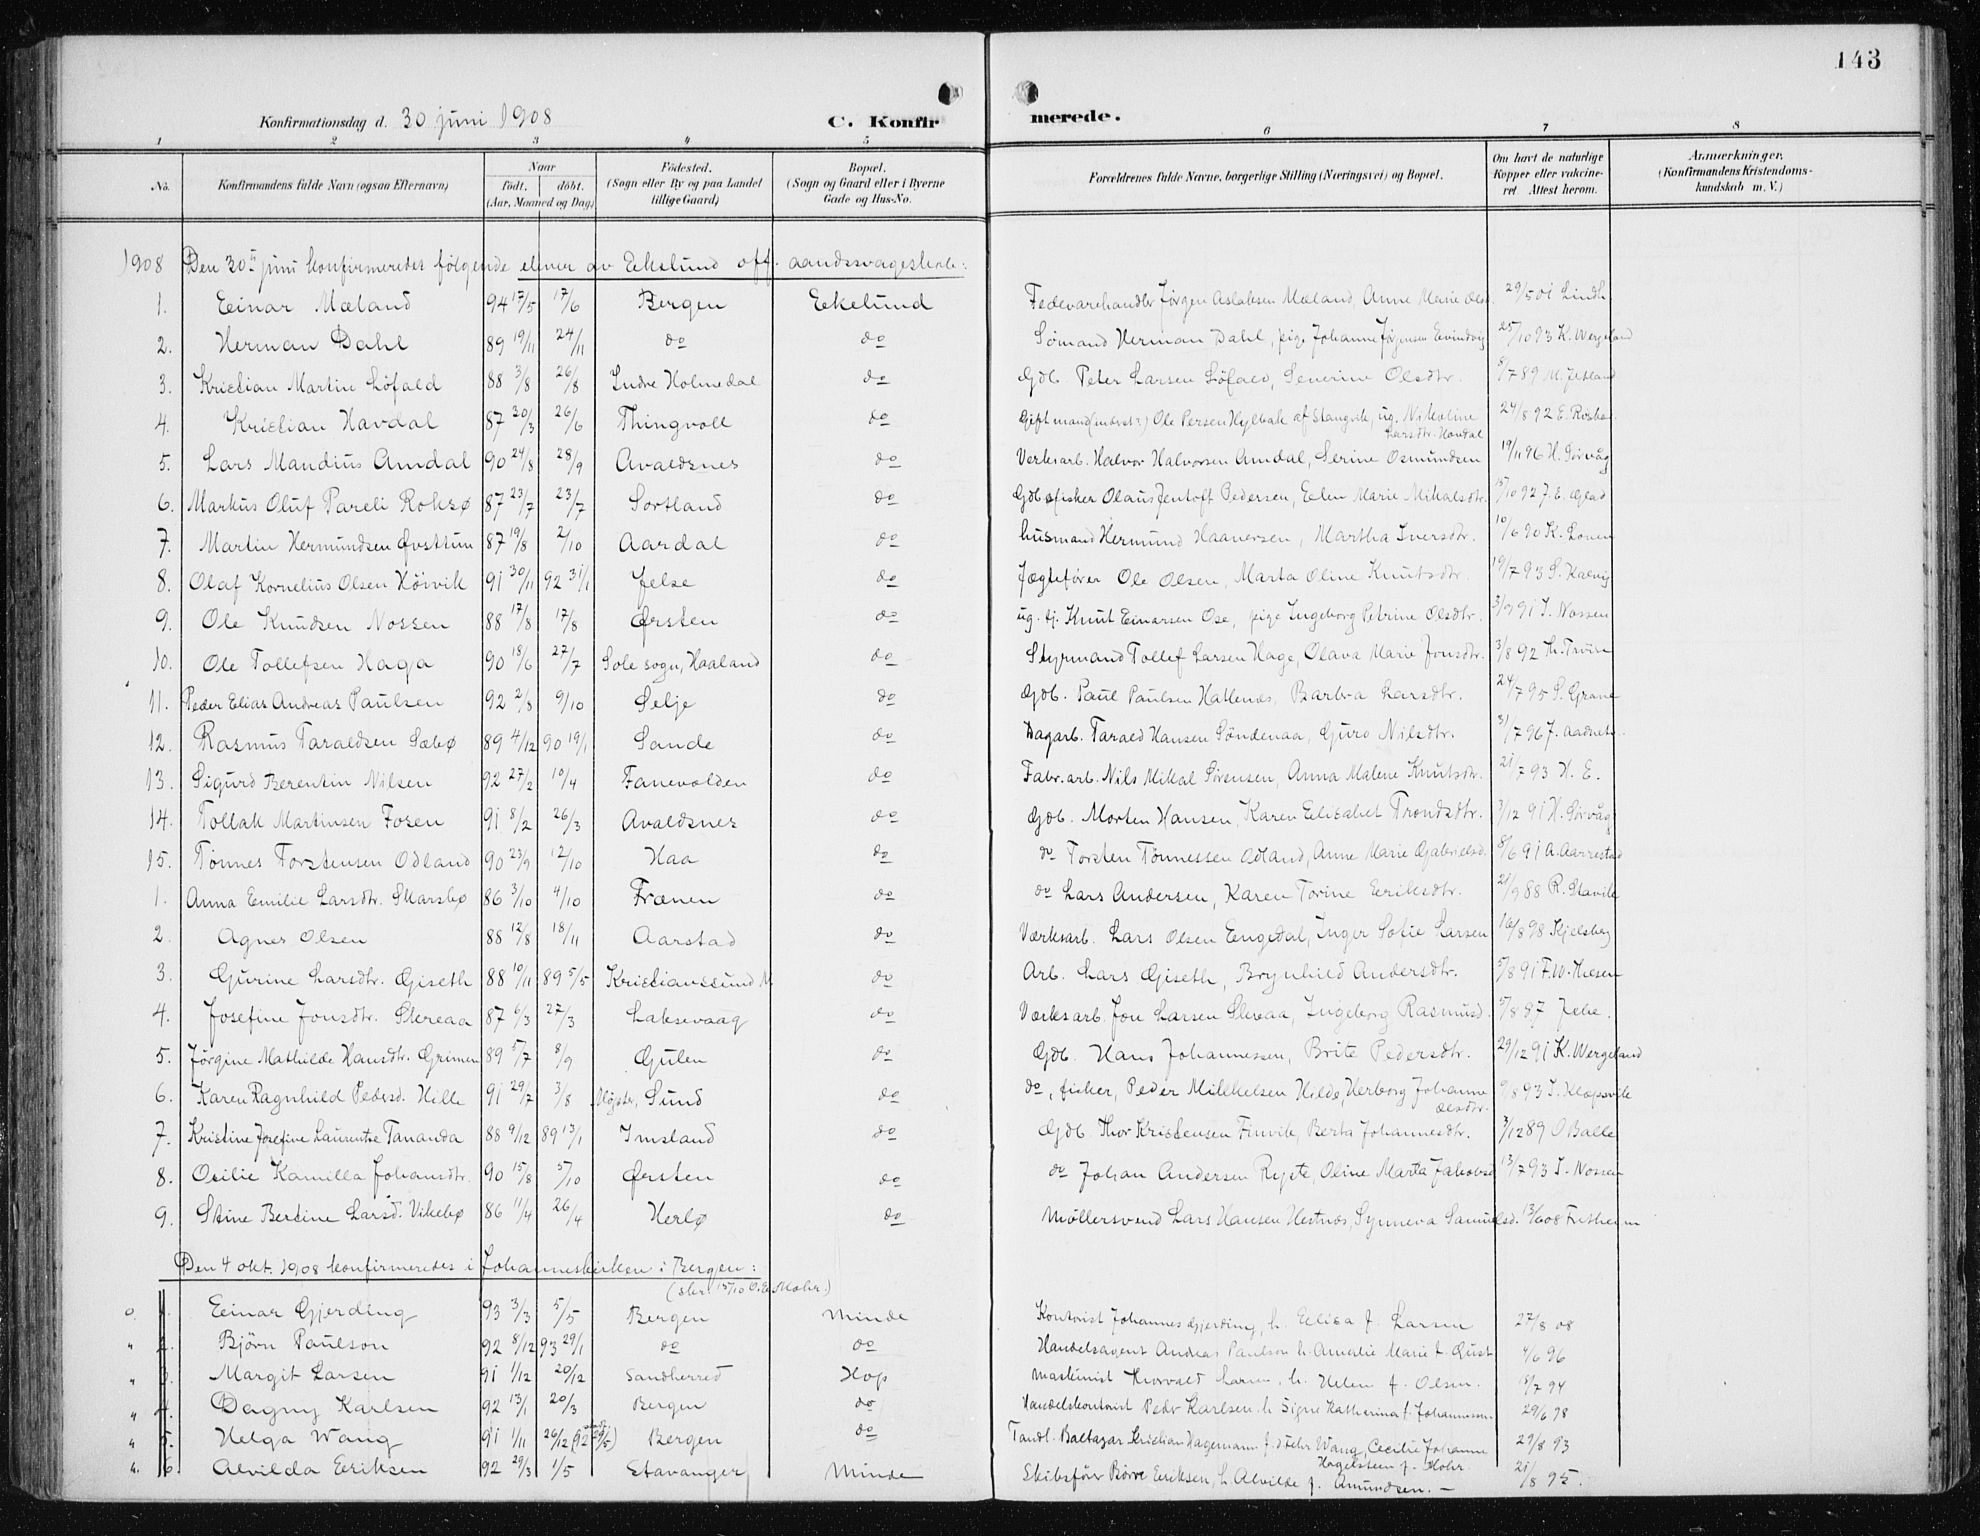 143
Konfirmationsdag d. 30 juni 1908
C. Konfir merede.
1 2 3 4 5 6 7 8
No. Konfirmandens fulde Navn (ogsaa Efternavn) Naar födt. döbt. (Aar, Maaned og Dag) Födested. (Sogn eller By og paa Landet tillige Gaard) Bopæl. (Sogn og Gaard eller i Byerne Gade og Hus-No. Forældrenes fulde Navne, borgerlige Stilling (Næringsvei) og Bopæl. Om havt de naturlige Kopper eller vakcineret. Attest herom. Anmærkninger. (Konfirmandens Kristendomskundskab m. V.)
1908 Den 30te juni konfirmeredes følgende elever av Eekelund off. aandssvageskole:
1. Einar Mæland 94 17/5 17/6 Bergen Eekelund Fedevarehandler Jørgen Aslaksen Mæland, Anne Marie Olsd. 29/5 01 Lindh
2. Herman Dahl 89 19/11 24/11 do do Sømand Herman Dahl, pige Johanne Jørgensen Eivindvig 25/10 93 K. Wergeland
3. Kristian Martin Löfald 88 3/8 26/8 Indre Holmedal do Gdb. Peter Larsen Löfald, Severine Olsdtr. 8/7 89 M. Jetland
4. Kristian Havdal 87 20/3 26/6 Thingvoll do Gift mand Ole Persen Hylbak af Stangvik, ug. Nikoline Larsdtr. Havdal 24/8 92 E. Roska
5. Lars Mandius Amdal 90 24/8 28/9 Avaldsnes do Verksarb. Halvor Halvorsen Amdal, Serine Osmundsen 19/11 96 H. Sørvåg
6. Markus Oluf Pareli Roksø 87 23/7 23/7 Sortland do Gdb. fisker Olaus Jentoft Pedersen, Elen Marie Mikalsdtr. 15/10 92 J. E. Glad
7. Martin Hermundsen Øvsttun 87 19/8 2/10 Aardal do husmand Hermund Haaversen, Martha Iversdtr. 10/6 90 K. Lonen
8. Olaf Kornelius Olsen Höivik 91 30/11 92 31/1 Jelse do Jægtefører Ole Olsen, Marta Oline Knutsdtr. 19/7 93 S. Kalvig
9. Ole Knudsen Nossen 88 17/8 17/8 Ørsten do ug. tj. Knut Einarsen Ose, pige Ingeborg Petrine Olsdtr. 3/9 91 I. Nossen
10. Ole Tollefsen Haga 90 18/6 27/7 Sole sogn, Haaland do Styrmand Tollef Larsen Hage, Olava Marie Jonsdtr. 3/8 92
11. Peder Elias Andreas Paulsen 92 2/8 9/10 Selje do Gdb. Paul Paulsen Hattenes, Barbra Larsdtr. 24/7 95 S. Grane
12. Rasmus Taraldsen Sæbø 89 4/12 90 19/1 Sande do Dagarb. Tarald Hansen Söndenaa, Guro Nilsdtr. 31/7 96 J. Aadnets.
13. Sigurd Berentin Nilsen 92 27/2 10/4 Fanevolden do Fabr. arb. Nils Mikal Sörensen, Anna Malene Knutsdtr. 21/7 93 H. E.
14. Tollak Martinsen Fosen 91 8/2 26/3 Avaldsnes do Gdb. Morten Hansen, Karen Elisabet Trondsdtr. 3/12 91 H. Sørvåg
15. Tönnes Torstensen Odland 90 23/9 12/10 Haa do do Torsten Tönnessen Odland, Anne Marie Gabrielsd. 8/6 91 A. Aarrestad
1. Anna Emilie Larsdtr. Skarsbø 86 3/10 4/10 Frænen do do Lars Andersen, Karen Torine Eriksdtr. 21/9 88 R. Slavik
2. Agnes Olsen 88 12/8 18/11 Aarstad do Værksarb. Lars Olsen Engedal, Inger Sofie Larsen 16/8 98 Kjelsberg
3. Gurine Larsdtr. Giseth 88 10/11 89 5/5 Kristianssund N. do Arb. Lars Giseth, Brynhild Andersdtr. 5/8 91 F. W. Thesen
4. Josefine Jonsdtr. Skreaa 87 6/3 27/3 Laksevaag do Værksarb. Jon Larsen Skreaa, Ingeborg Rasmusd. 5/8 87
5. Jørgine Mathilde Hansdtr. Grimen 89 5/7 8/9 Gulen do Gdb. Hans Johannessen, Brite Pedersdtr. 29/12 91 K. Wergeland
6. Karen Ragnhild Pedersd. Hille 91 29/7 3/8 Sund do do, fisker, Peder Mikkelsen Hilde, Herborg Johanne Olsdtr. 9/8 93 I. Klepsvik
7. Kristine Josefine Laurentse Tananda 88 9/12 89 13/1 Imsland do Gdb. Thor Kristensen Finvik, Berta Johannesdtr. 3/12 89 O Balle
8. Osilie Kamilla Johansdtr. 90 15/8 5/10 Ørsten do do Johan Andersen Ryste, Oline Marta Jakobsd 13/7 93 I. Nossen
9. Stine Bertine Larsd. Vikebø 86 11/4 26/4 Herlø do Möllersvend Lars Hansen Hestnes, Synneva Samuelsd. 13/6 08
Den 4 okt. 1908 konfirmeredes i Johanneskirken i Bergen:
(skr. 15/10 O. E. Mohr.)
1. Einar Gjerding 93 3/3 5/5 Bergen Minde Kontorist Johannes Gjerding, h. Elisa f. Larsen 27/8 08
2. Björn Paulson 92 8/12 93 29/1 do do Handelsagent Andreas Paulson h. Amalie Marie f. Qust 4/6 96
3. Margit Larsen 91 1/12 20/12 Sandherred Hop Maskinist Thorvald Larsen, h. Helen f. Olsen. 8/7 94
4. Dagny Karlsen 92 13/1 20/3 Bergen do Handelskontorist Pedr Karlsen h Signe Katharina f. Johannessen 29/6 98
5. Helga Wang 91 1/11 26/12 (92 29/5) Bergen do Tandl. Baltazar Kristian Hagemann f. d Fehr Wang, Cecilie Johanne Hagelsteen f. Mohr. 29/8 93
6. Alvilda Eriksen 92 29/3 1/5 Stavanger Minde Skibsförer Börre Eriksen, h Alvilde f. Amundsen. 21/8 95.